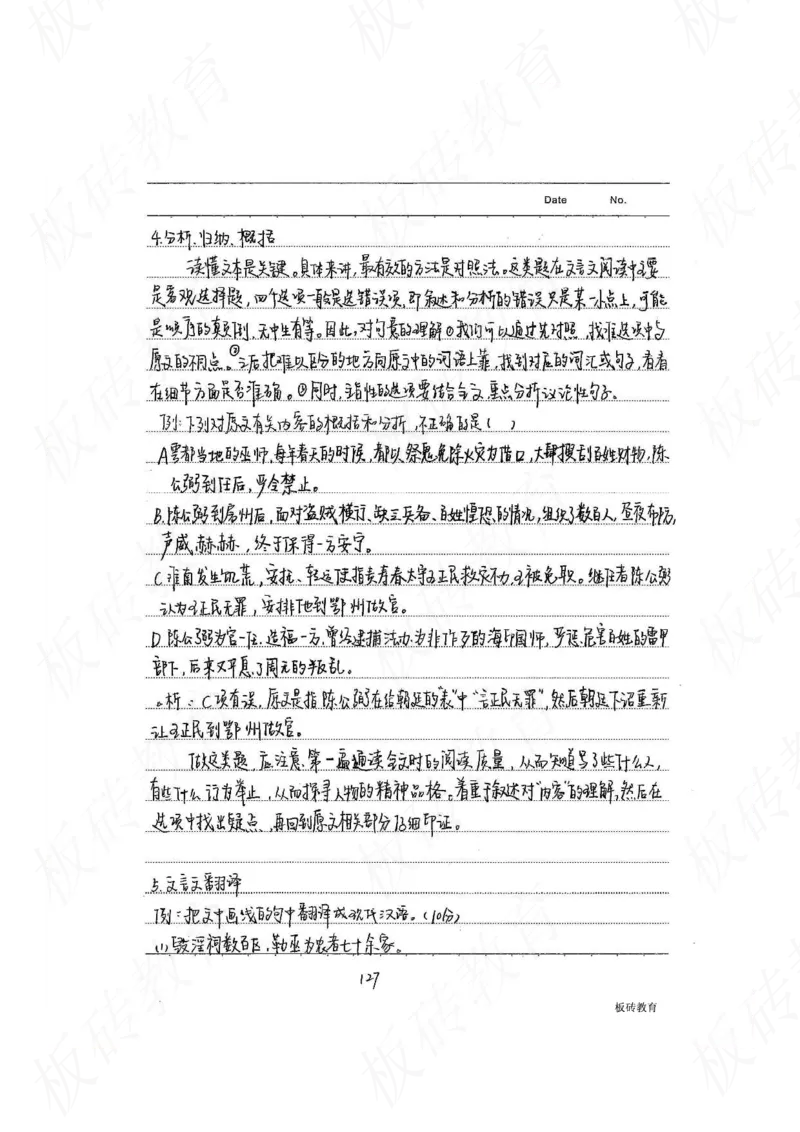 Date No.
4.分析、归纳、概括
读懂文本是关键。具体来讲,最有效的方法是对照法。这类题在文言文阅读中主要
是客观选择题,四个选项一般是选错误项,即叙述和分析的错误只是某一小点上,可能
是顺序的颠倒,无中生有等。因此,对句意的理解①我们可以通过先对照,找准选项中与
原文的不同点。②之后把难以区分的地方向原文中的词语上靠,找到对应的词汇或句子,看看
在细节方面是否准确。③同时,主旨性的选项要结合全文,重点分析议论性句子。
例:下列对原文有关内容的概括和分析,不正确的是( )
A.雩都当地的巫师,每年春天的时候,都以祭鬼免除火灾为借口,大肆搜刮百姓财物,陈
公弼到任后,严令禁止。
B.陈公弼到房州后,面对盗贼横行、缺三兵备、百姓懂恐的情况,组织了数百人,昼夜布防,
声威赫赫,终于保得一方安宁。
C.淮南发生饥荒,安抚、转运使指责寿春太守王正民救灾不力,王被免职。继任者陈公弼
认为王正民无罪,安排他到鄂州做官。
D.陈公弼为官一任,造福一方,曾经逮捕法办为非作歹的海印国师,严惩危害百姓的雷甲
部下,后来又平息了周元的叛乱。
析:C项有误,原文是指陈公弼在给朝廷的"表"中"言正民无罪",然后朝廷下诏重新
让王正民到鄂州做官。
做这类题,应注意第一遍通读全文时的阅读质量,从而知道写了些什么人,
有些什么行为举止,从而探寻人物的精神品格。着重于叙述对"内容"的理解,然后在
选项中找出疑点,再回到原文相关部分仔细印证。
5.文言文翻译
例:把文中画线的句中翻译成现代汉语。(10分)
(1)毁淫祠数百区,勒巫为农者七十余家。
127
板砖教育